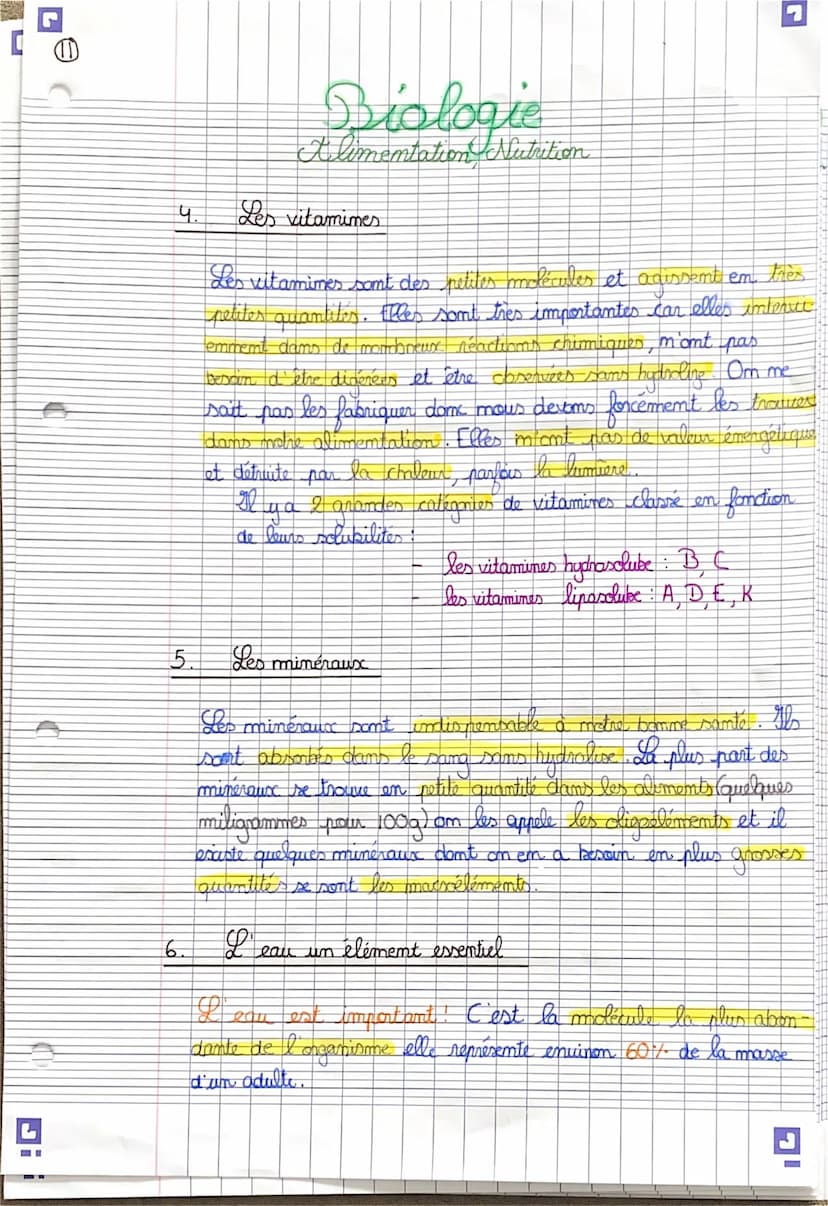 11
Biologie
Alimentation, Nutrition
4. Les vitamines
Les vitamines sont des petites molécules et agissent en très
petites quantités. Elles sont très importantes car elles intervi
ennent dans de nombreux réactions chimiques, n'ont pas
besoin d'être digérées et être observées sans hydrolise. On ne
sait pas les fabriquer donc nous devons forcément les trouver
dans notre alimentation. Elles n'ont pas de valeur énergétique
et détruite par la chaleur, parfois la lumière.
Il y a 2 grandes catégories de vitamines classé en fonction
de leurs solubilités :
- les vitamines hydrosolube : B, C
- les vitamines liposolube : A, D, E, K
5. Les minéraux
Les minéraux sont indispensable à notre bonne santé. Ils
sont absorbés dans le sang sans hydrolise. La plus part des
minéraux se trouve en petite quantité dans les aliments (quelques
miligrammes pour 100g) on les appele les oligoéléments et il
existe quelques minéraux dont on en a besoin en plus grosses
quantités se sont les macroéléments.
6. L'eau un élément essentiel
L'eau est important ! C'est la molécule la plus abon-
dante de l'organisme elle représente environ 60% de la masse
d'un adulte.